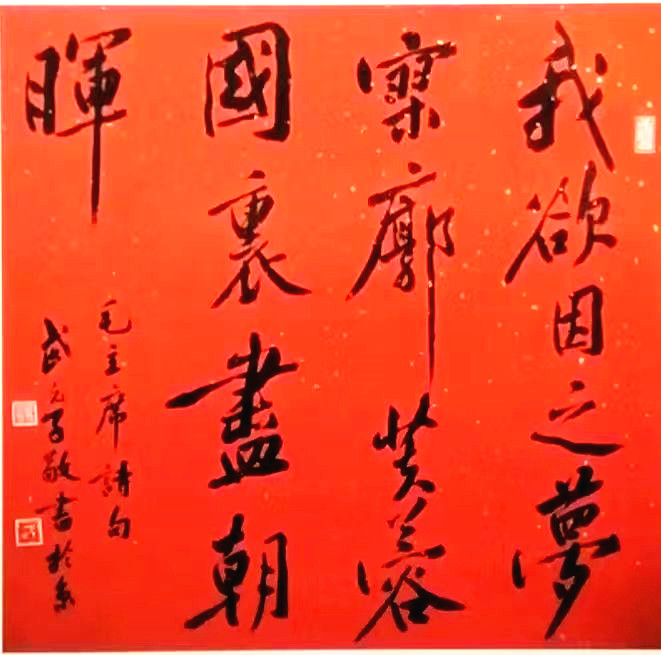 我欲因之夢
寥廓芙蓉
國裏盡朝
暉
毛主席詩句
敬書於京